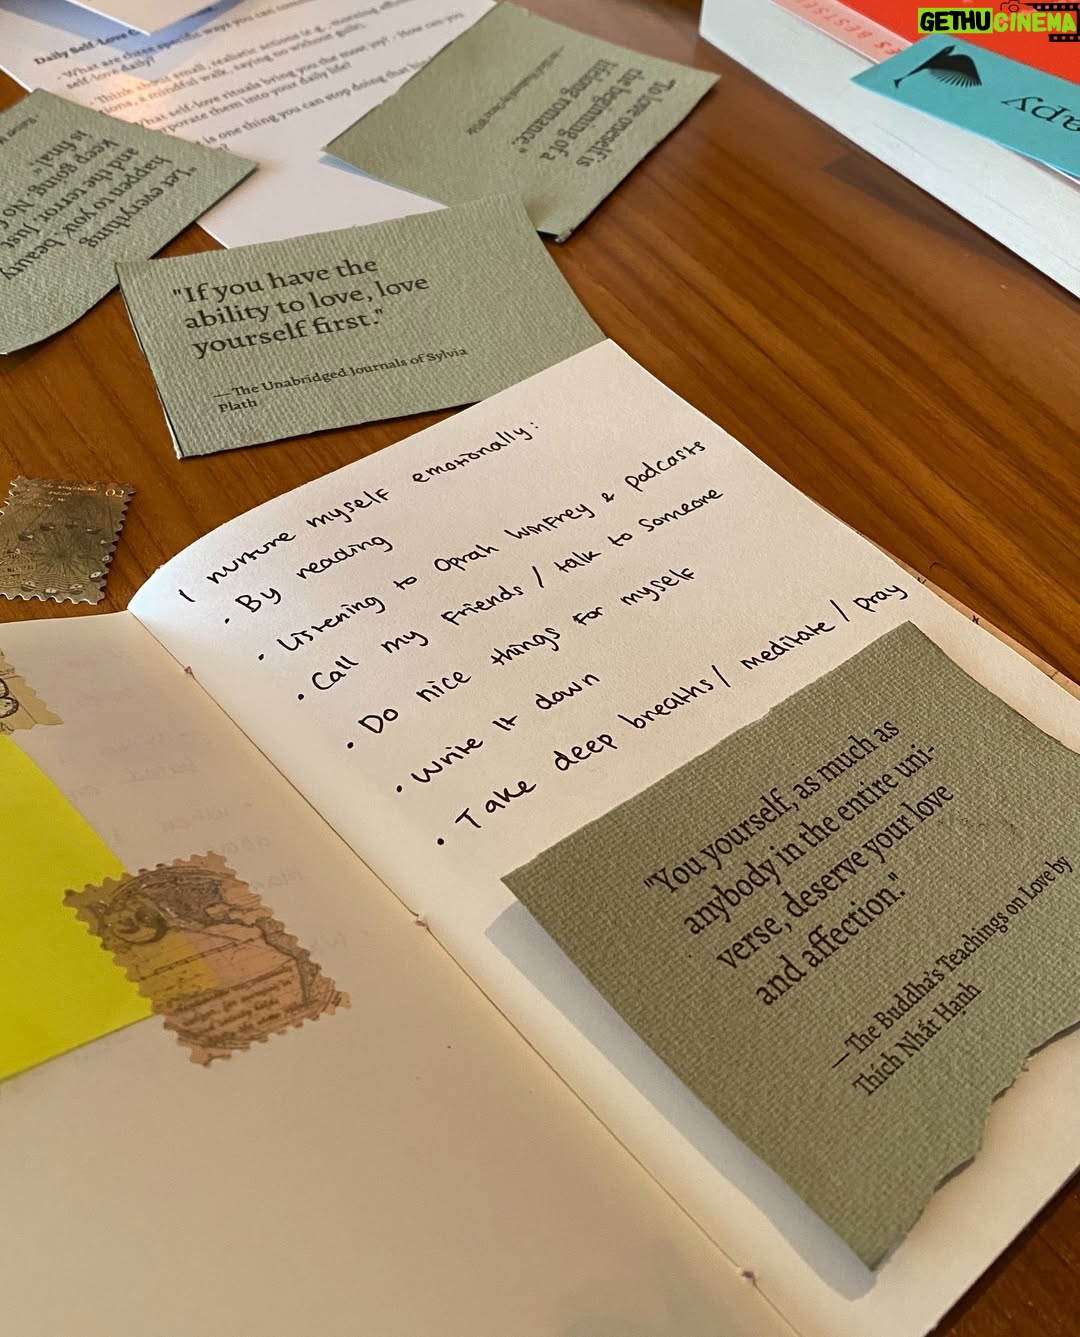 GETHUCINEMA
Daily Self-Love
What are
specific ways you can
self-love daily?
Think about small, realistic actions (e.g., morning
a mindful walk, saying no without
What self-love rituals bring you the most joy? How can you
them into your daily life?
is one thing you can stop doing that
"To love oneself is
the beginning of a
lifelong romance."
"Let everything
happen to you: beauty
and the terror. Just
keep going. No
is final."
"If you have the
ability to love, love
yourself first."
— The Unabridged Journals of Sylvia
Plath
I nurture myself emotionally:
• By reading
• Listening to Oprah Winfrey & podcasts
• Call my friends / talk to someone
• Do nice things for myself
• Write it down
• Take deep breaths / meditate / pray
"You yourself, as much as
anybody in the entire uni-
verse, deserve your love
and affection."
— The Buddha's Teachings on Love by
Thích Nhất Hạnh
apy